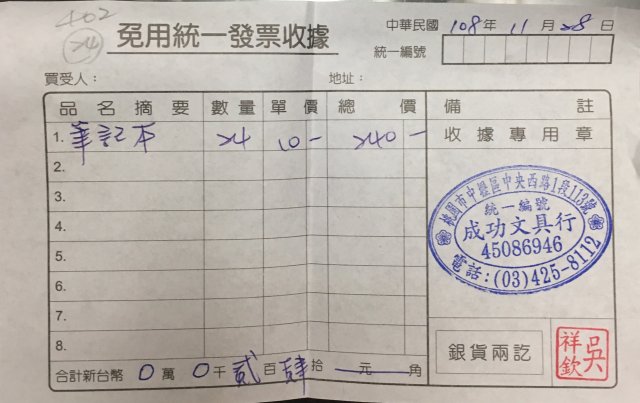 402
24
免用統一發票收據
中華民國 108 年 11 月 28 日
統一編號
買受人：
地址：
品名摘要 數量 單價 總價 備註
1. 筆記本 24 10- 240-
收據專用章
2.
3.
4.
5.
6.
7.
8.
桃園市中壢區中央西路1段113號
統一編號
成功文具行
45086946
電話：(03)425-8112
銀貨兩訖
吳祥欽
合計新台幣 0 萬 0 千 貳 百 肆 拾 元 角